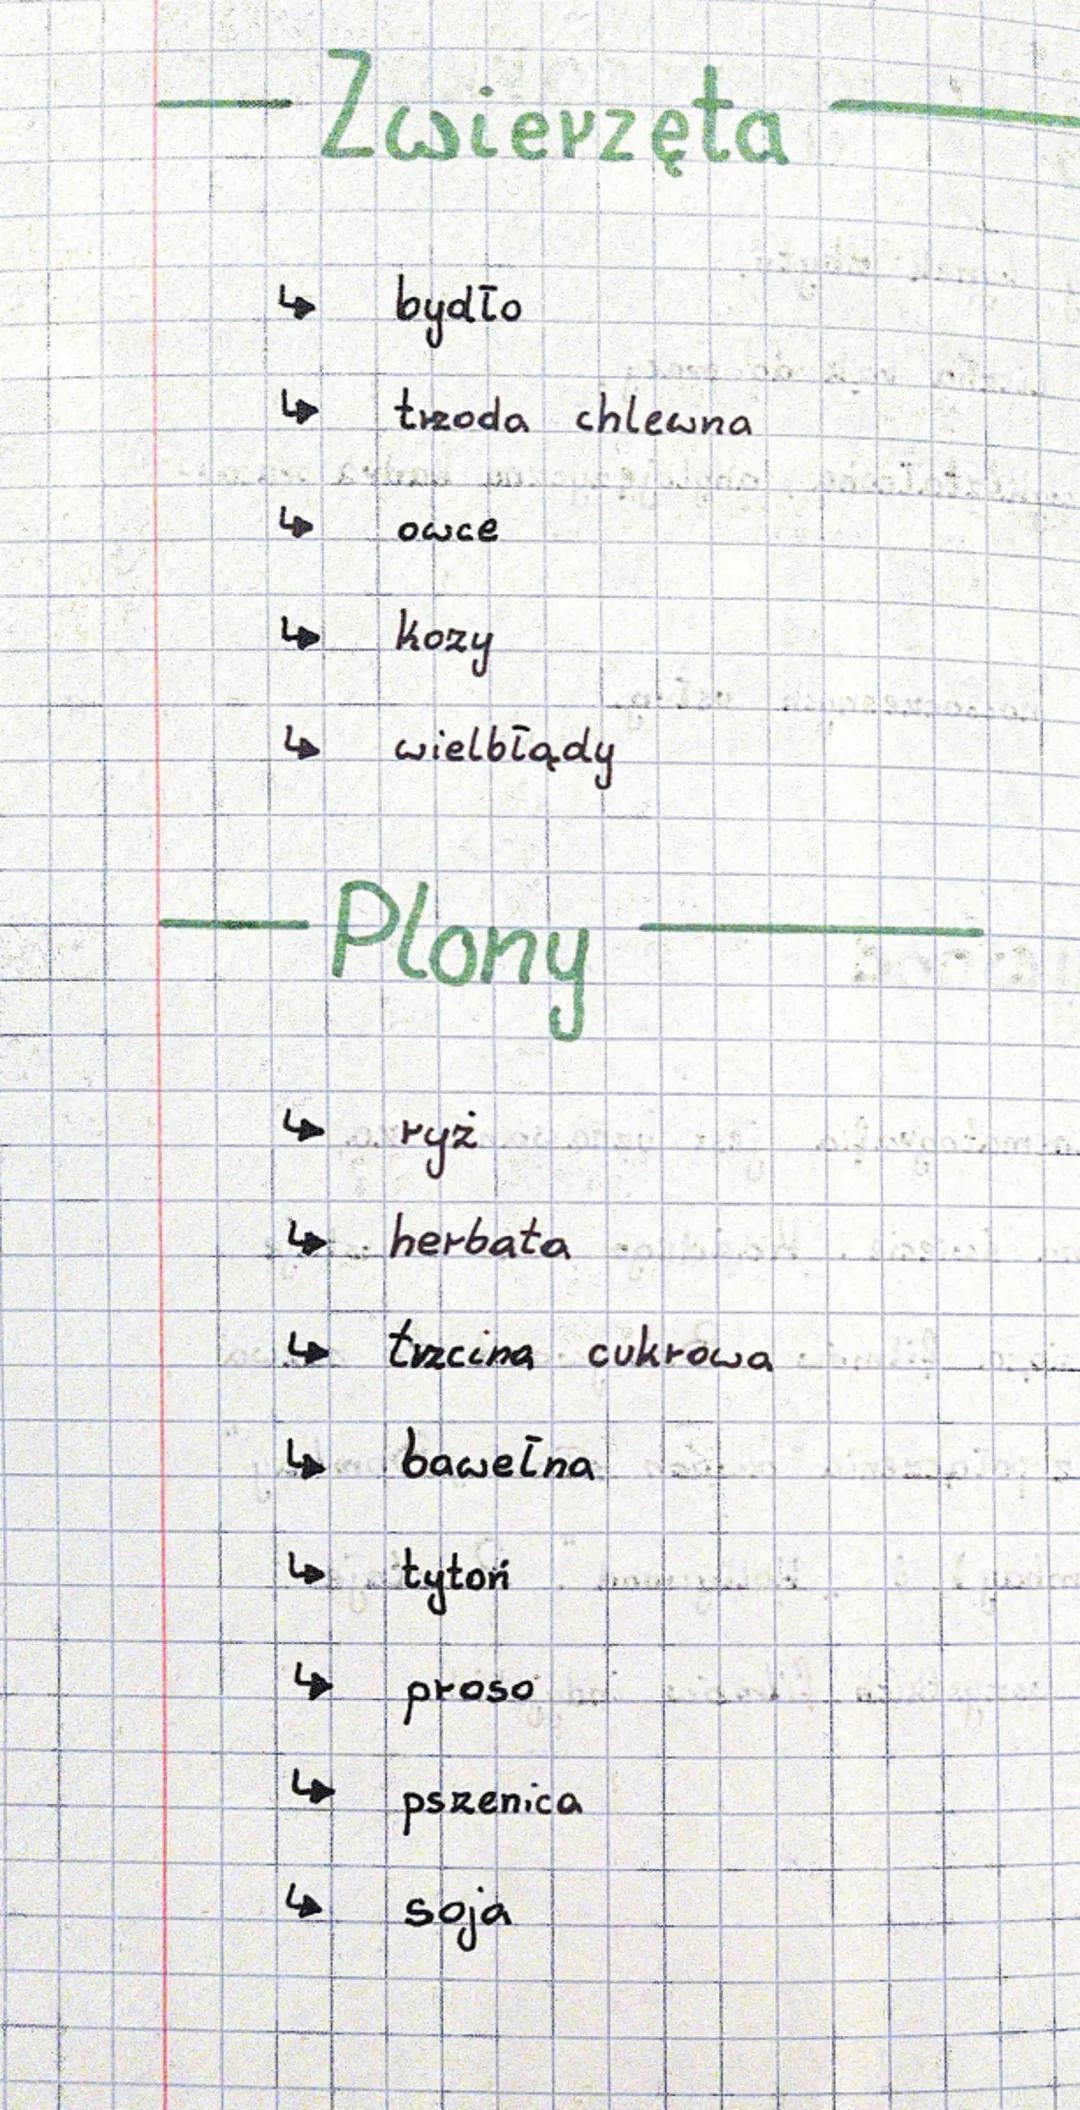 Zwierzęta
↳ bydło
↳ trzoda chlewna
↳ owce
↳ kozy
↳ wielbłądy
Plony
↳ ryż
↳ herbata
↳ trzcina cukrowa
↳ bawełna
↳ tytoń
↳ proso
↳ pszenica
↳ soja